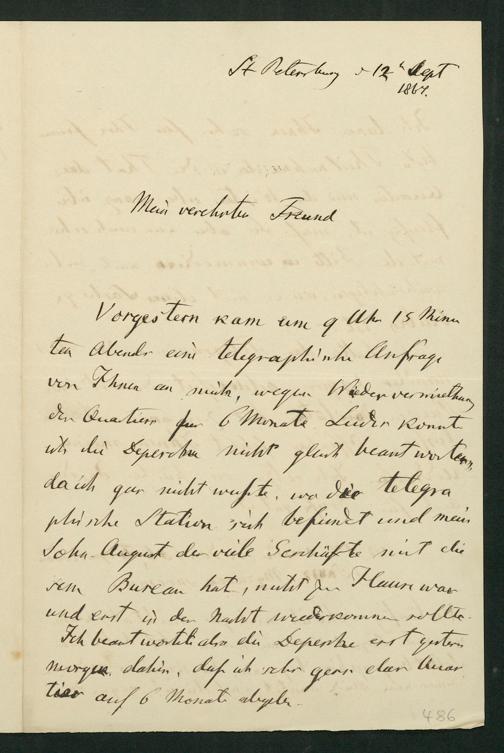 St Petersburg d 12ten Sept
1867.
Mein verehrter Freund
Vorgestern kam um 9 Uhr 15 Minu
ten Abends eine telegraphische Anfrage
von Ihnen an mich, wegen Wiedervermiethung
des Quartiers für 6 Monate Leider konnt
ich die Depesche nicht gleich beantworten,
da ich gar nicht wußte, wo die telegra
phische Station sich befindet und mein
Sohn August der viele Geschäfte mit die
sem Bureau hat, nicht zu Hause war
und erst in der Nacht wiederkommen sollte.
Ich beantwortete also die Depesche erst gestern
morgen dahin, daß ich sehr gern das Quar
tier auf 6 Monate
486